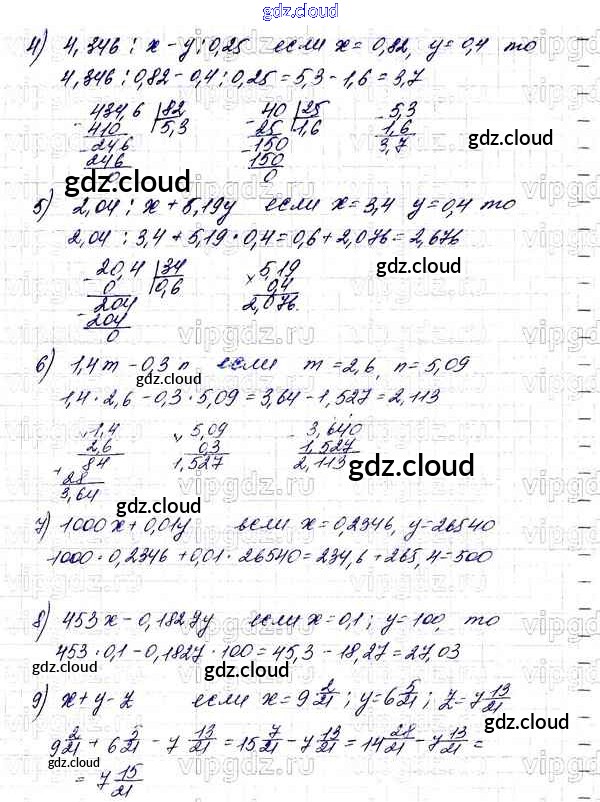 gdz.cloud
4) 4,346 : x - y : 0,25 если x = 0,82, y = 0,4 то
4,346 : 0,82 - 0,4 : 0,25 = 5,3 - 1,6 = 3,7
434,6 82 40 25 5,3
410 5,3 25 1,6 1,6
246 150 3,7
246 150
0 0
gdz.cloud
gdz.cloud
5) 2,04 : x + 5,19y если x = 3,4 y = 0,4 то
2,04 : 3,4 + 5,19 · 0,4 = 0,6 + 2,076 = 2,676
20,4 34 5,19
0 0,6 0,4
204 2,076
204
0
gdz.cloud
vipgdz.ru
6) 1,4m - 0,3n если m = 2,6, n = 5,09
gdz.cloud
1,4 · 2,6 - 0,3 · 5,09 = 3,64 - 1,527 = 2,113
1,4 5,09 3,640
2,6 0,3 1,527
84 1,527 2,113
28
3,64
gdz.cloud
gdz.cloud
7) 1000x + 0,01y если x = 0,2346, y = 26540
1000 · 0,2346 + 0,01 · 26540 = 234,6 + 265,4 = 500
8) 453x - 0,1827y если x = 0,1; y = 100, то
453 · 0,1 - 0,1827 · 100 = 45,3 - 18,27 = 27,03
gdz.cloud
gdz.cloud
9) x + y - z если x = 9 2/21; y = 6 5/21; z = 7 13/21
gdz.cloud
9 2/21 + 6 5/21 - 7 13/21 = 15 7/21 - 7 13/21 = 14 28/21 - 7 13/21 =
= 7 15/21
gdz.cloud